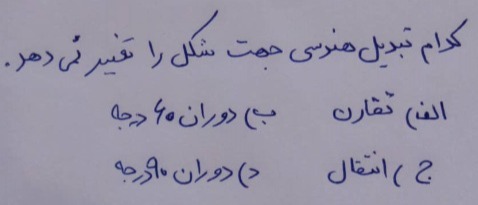 کدام تبدیل هندسی جهت شکل را تغییر نمی دهد.
الف) تقارن ب) دوران ۶۰ درجه
ج) انتقال د) دوران ۹۰ درجه